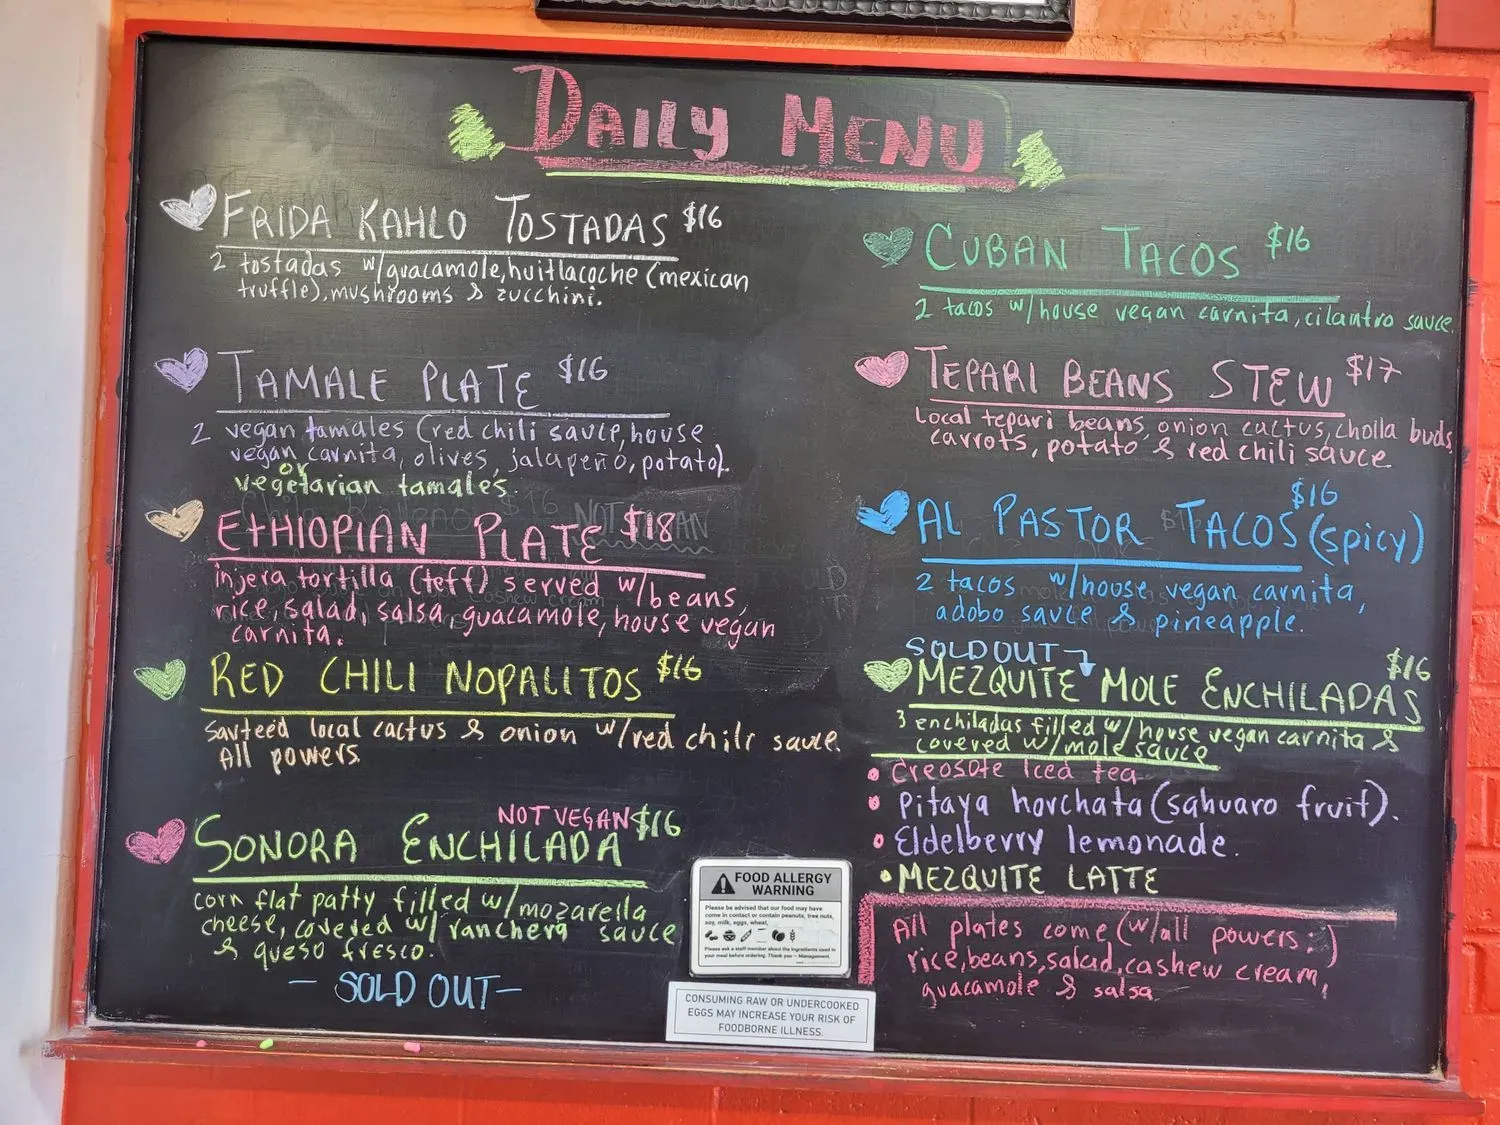 DAILY MENU
FRIDA KAHLO TOSTADAS $16
2 tostadas w/guacamole, huitlacoche (mexican
truffle), mushrooms & zucchini.
TAMALE PLATE $16
2 vegan tamales (red chili sauce, house
vegan carnita, olives, jalapeño, potato).
or
vegetarian tamales.
ETHIOPIAN PLATE $18
injera tortilla (teff) served w/beans,
rice, salad, salsa, guacamole, house vegan
carnita.
RED CHILI NOPALITOS $16
Sauteed local cactus & onion w/red chili sauce.
All powers
NOT VEGAN
SONORA ENCHILADA $16
corn flat patty filled w/mozarella
cheese, covered w/ ranchera sauce
& queso fresco.
- SOLD OUT -
CUBAN TACOS $16
2 tacos w/house vegan carnita, cilantro sauce.
TEPARI BEANS STEW $17
Local tepari beans, onion cactus, cholla buds,
carrots, potato & red chili sauce
AL PASTOR TACOS (spicy) $16
2 tacos w/house vegan carnita,
adobo sauce & pineapple.
SOLD OUT
MEZQUITE MOLE ENCHILADAS $16
3 enchiladas filled w/house vegan carnita &
covered w/mole sauce
• Creosote Iced tea
• Pitaya horchata (sahuaro fruit).
• Eldelberry lemonade.
• MEZQUITE LATTE
All plates come (w/all powers:)
rice, beans, salad, cashew cream,
guacamole & salsa
FOOD ALLERGY
WARNING
Please be advised that our food may have
come in contact or contain peanuts, tree nuts,
soy, milk, eggs, wheat,
Please ask a staff member about the ingredients used in
your meal before ordering. Thank you - Management.
CONSUMING RAW OR UNDERCOOKED
EGGS MAY INCREASE YOUR RISK OF
FOODBORNE ILLNESS.